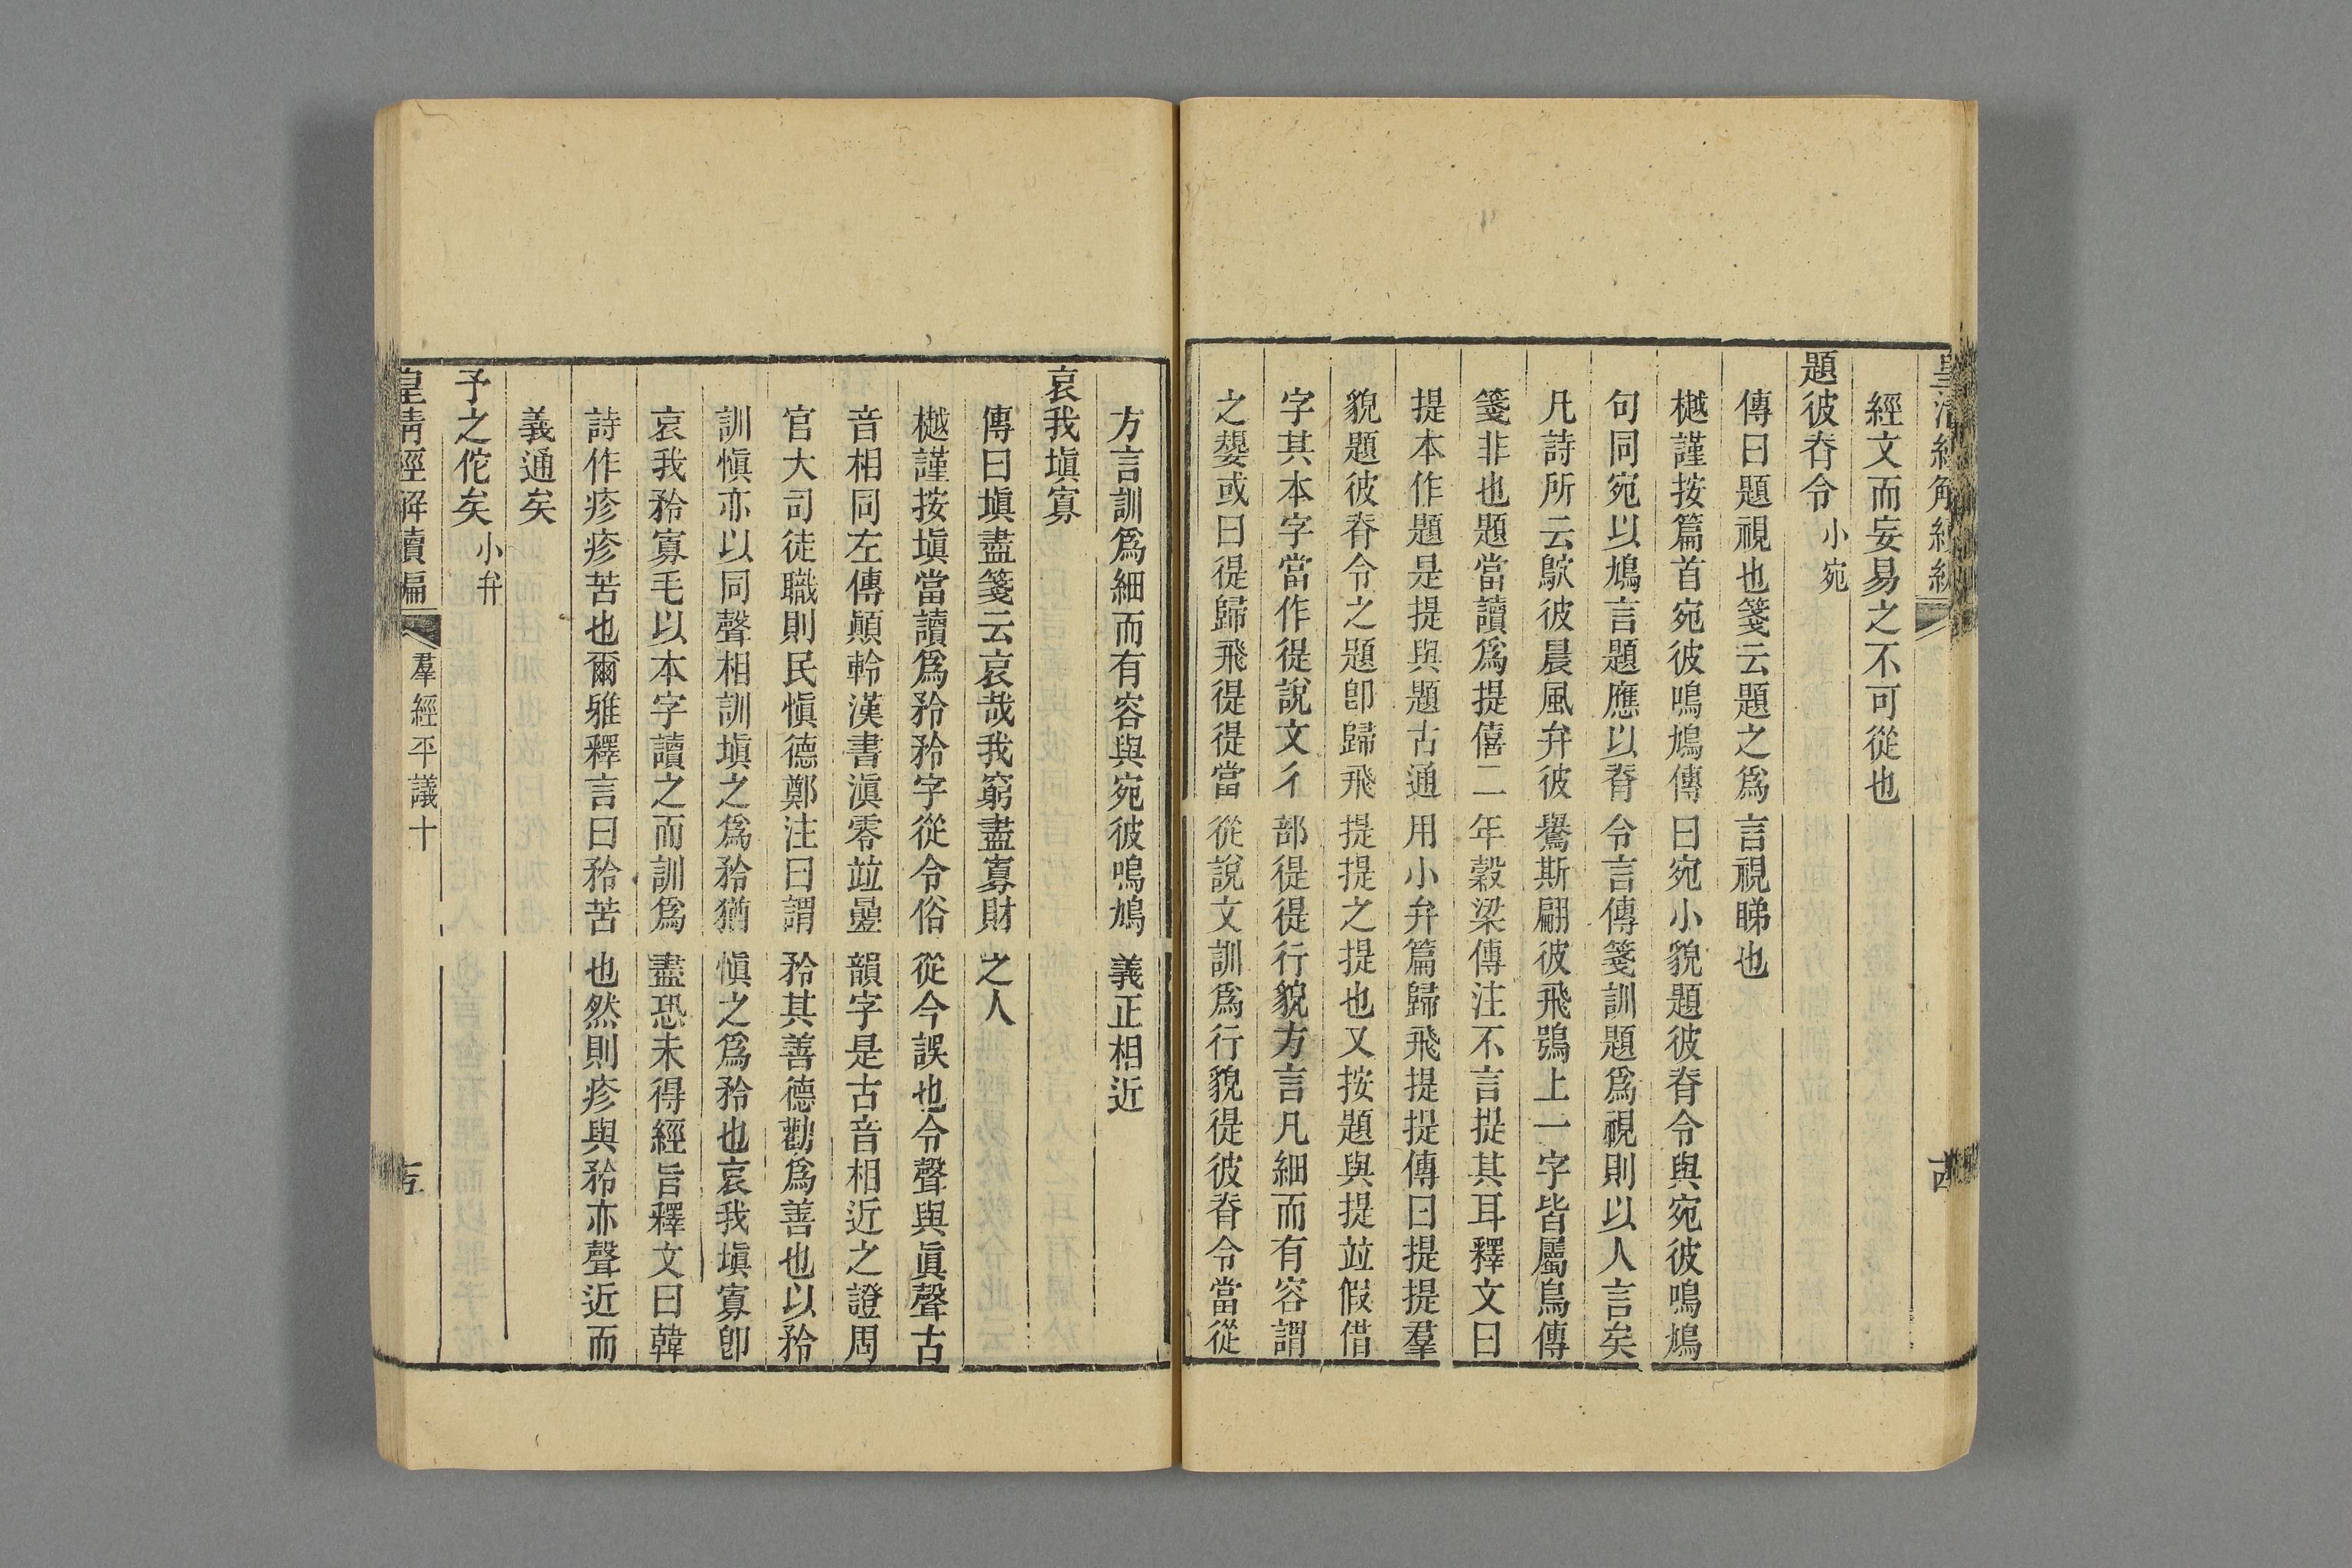 皇清經解續編
經文而妄易之不可從也
題彼脊令小宛
傳曰題視也箋云題之爲言視睇也
樾謹按篇首宛彼鳴鳩傳曰宛小貌題彼脊令與宛彼鳴鳩
句同宛以鳩言題應以脊令言傳箋訓題爲視則以人言矣
凡詩所云鴥彼晨風弁彼鸒斯翩彼飛鴞上一字皆屬鳥傳
箋非也題當讀爲提僖二年穀梁傳注不言提其耳釋文曰
提本作題是提與題古通用小弁篇歸飛提提傳曰提提羣
貌題彼脊令之題卽歸飛提提之提也又按題與提竝假借
字其本字當作徥說文彳部徥徥行貌方言凡細而有容謂
之嫢或曰徥歸飛徥徥當從說文訓爲行貌徥彼脊令當從
方言訓爲細而有容與宛彼鳴鳩義正相近
哀我塡寡
傳曰塡盡箋云哀哉我窮盡寡財之人
樾謹按塡當讀爲矜矜字從令俗從今誤也令聲與眞聲古
音相同左傳顚軨漢書滇零竝疊韻字是古音相近之證周
官大司徒職則民愼德鄭注曰謂矜其善德勸爲善也以矜
訓愼亦以同聲相訓塡之爲矜猶愼之爲矜也哀我塡寡卽
哀我矜寡毛以本字讀之而訓爲盡恐未得經旨釋文曰韓
詩作疹疹苦也爾雅釋言曰矜苦也然則疹與矜亦聲近而
義通矣
予之佗矣小弁
皇清經解續編 羣經平議十